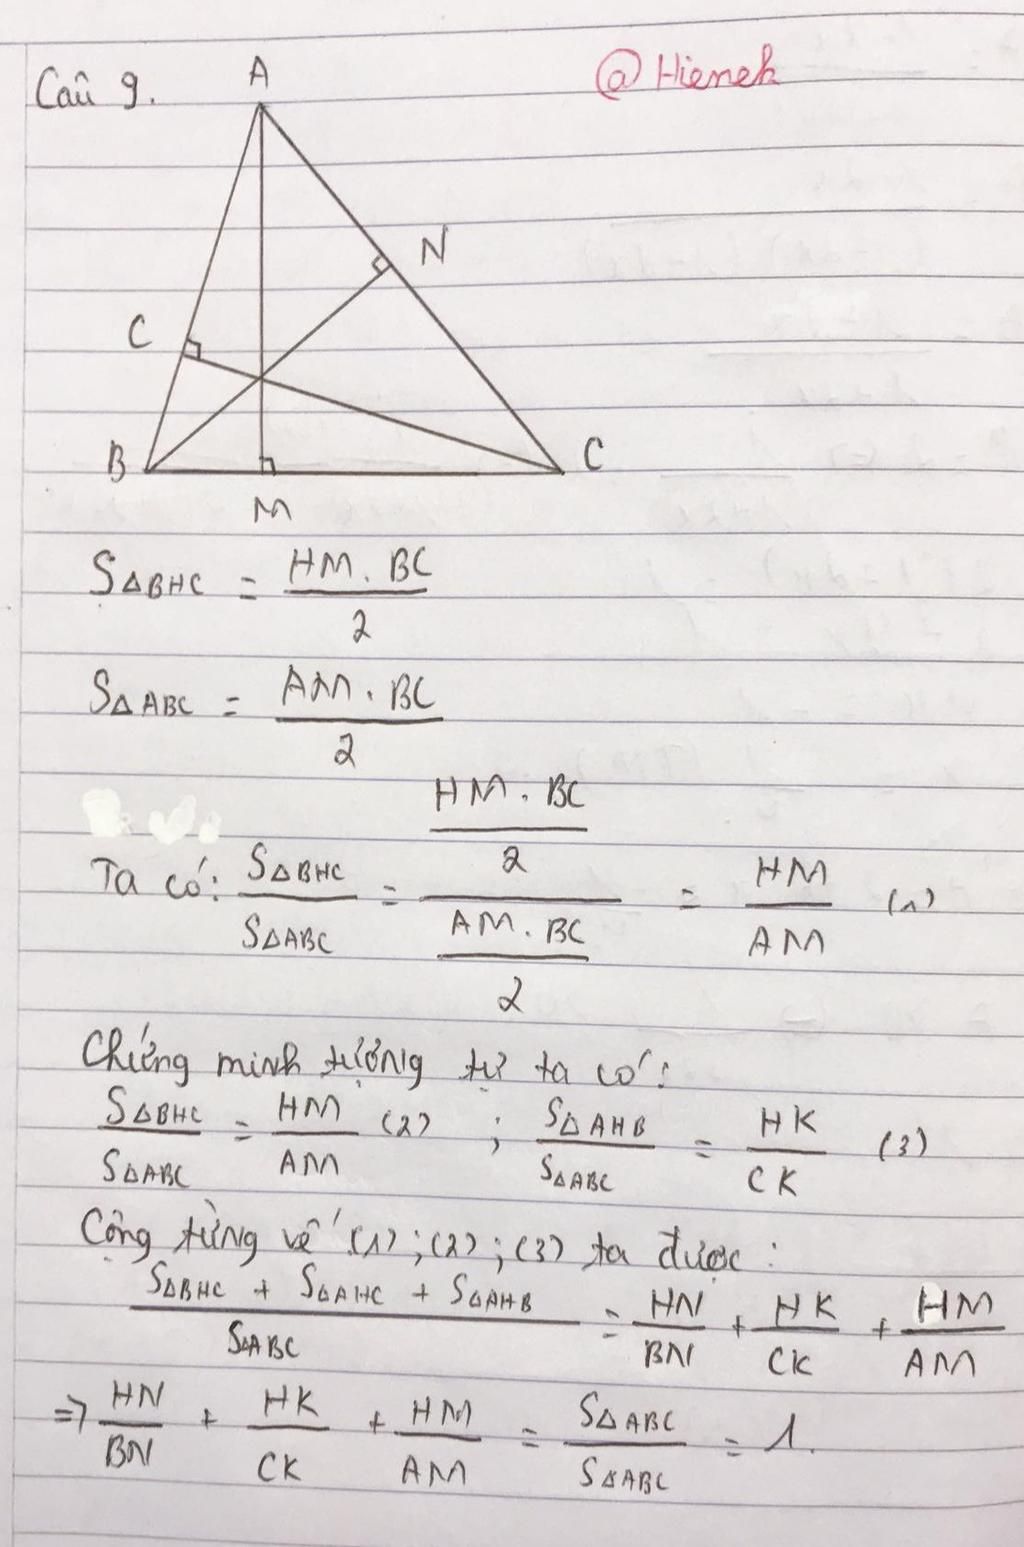 Câu 9.
@Hienek
A
N
C
B
C
M
S△BHC = HM . BC / 2
S△ABC = AM . BC / 2
Ta có: S△BHC / S△ABC = (HM . BC / 2) / (AM . BC / 2) = HM / AM (1)
Chứng minh tượng tự ta có:
S△BHC / S△ABC = HM / AM (2) ; S△AHB / S△ABC = HK / CK (3)
Cộng từng vế (1) ; (2) ; (3) ta được :
S△BHC + S△AHC + S△AHB / S△ABC = HN / BN + HK / CK + HM / AM
=> HN / BN + HK / CK + HM / AM = S△ABC / S△ABC = 1.